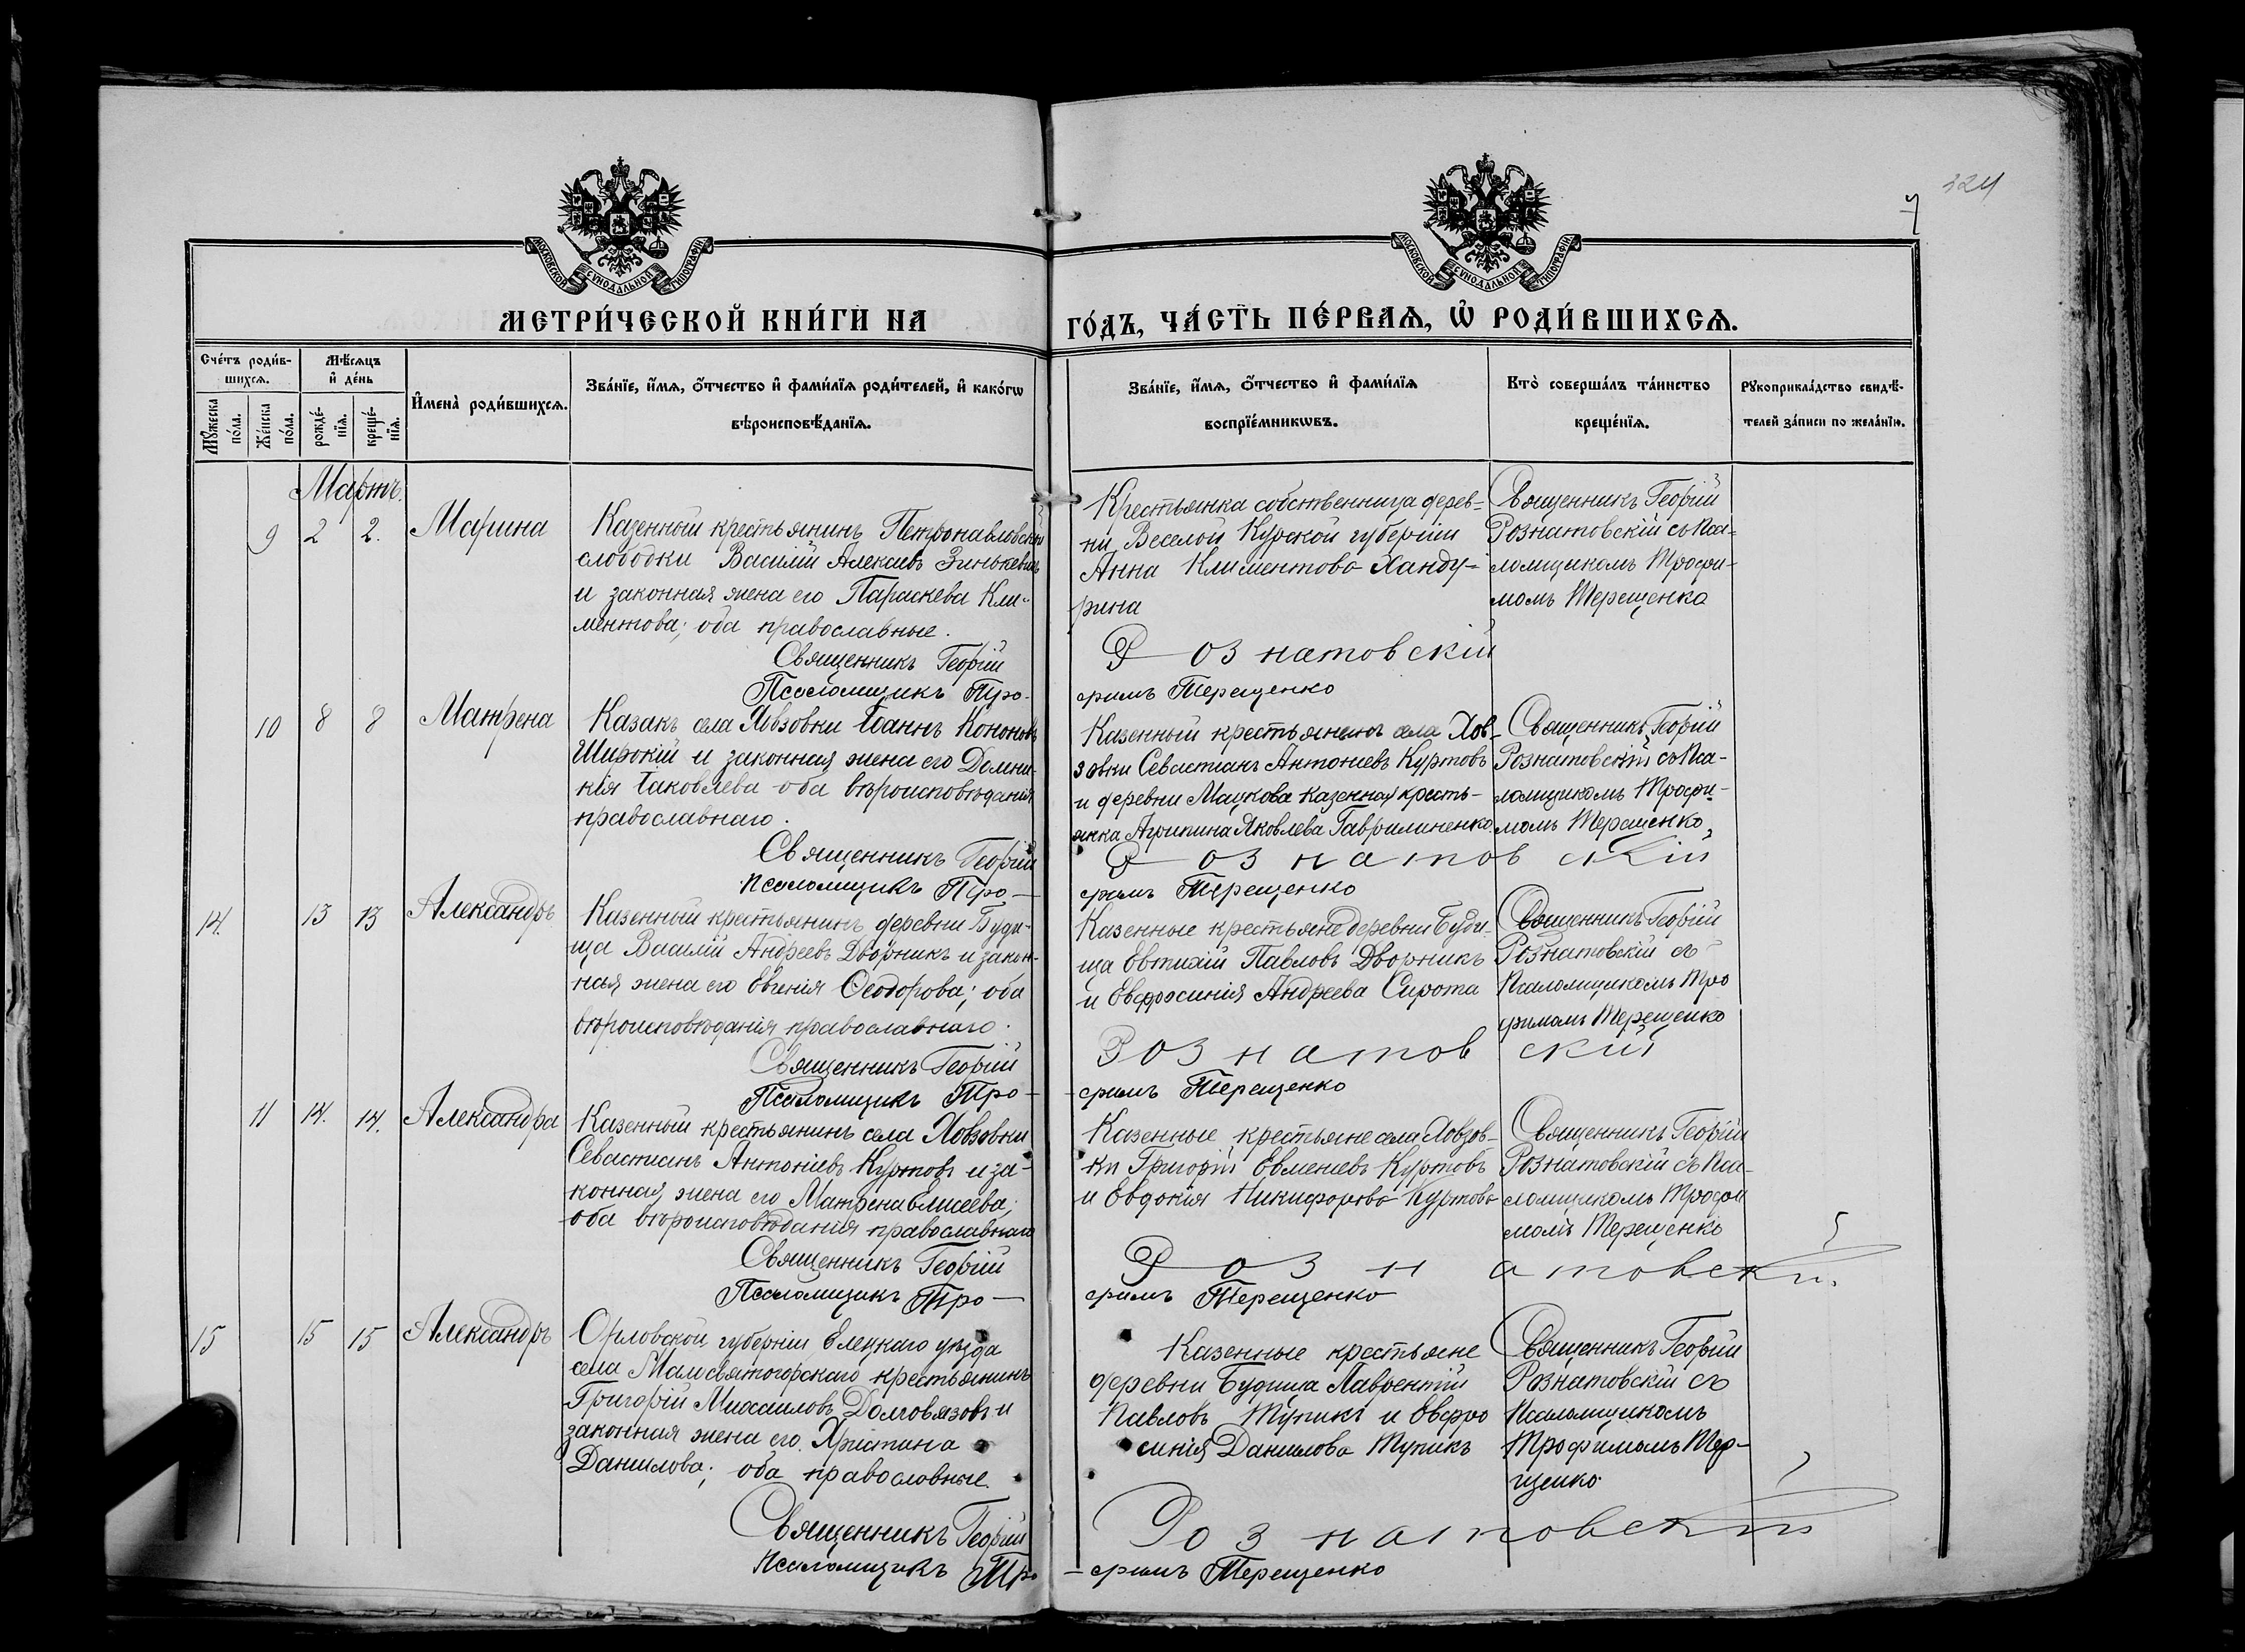 324
7
МОСКОВСКОЙ СѴНОДАЛЬНОЙ ТИПОГРАФІИ
МОСКОВСКОЙ СѴНОДАЛЬНОЙ ТИПОГРАФІИ
МЕТРИ́ЧЕСКОЙ КНИ́ГИ НА
ГО́ДЪ, ЧА́СТЬ ПЕ́РВАѦ, Ѡ҆ РОДИ́ВШИХСѦ.
Сче́тъ роди́в-
шихсѧ.
Мꙋ́жеска по́ла.
Же́нска по́ла.
Мѣ́сѧцъ
и҆ де́нь
рожде́-
нїѧ.
креще́-
нїѧ.
И҆мена̀ роди́вшихсѧ.
Зва́нїе, и҆́мѧ, ѻ҆́тчество и҆ фами́лїѧ роди́телей, и҆ како́гѡ
вѣроисповѣ́данїѧ.
Зва́нїе, и҆́мѧ, ѻ҆́тчество и҆ фами́лїѧ
воспрїе́мникѡвъ.
Кто̀ соверша́лъ та́инство
креще́нїѧ.
Рꙋкоприкла́дство свидѣ́-
телей за́писи по жела́нїю.
Мартъ.
9 2 2. Марина
Казенный крестьянинъ Петропавловской
слободки Василій Алексѣевъ Зинькевичъ
и законная жена его Параскева Кли-
ментова; оба православные.
Священникъ Георгій
Псаломщикъ Тро-
Крестьянка собственница дерев-
ни Веселой Курской губерніи
Анна Климентова Ханду-
рина
Розnатовскій
фимъ Терещенко
Священникъ Георгій
Рознатовскій съ Пса-
ломщикомъ Трофи-
момъ Терещенко
10 8 8 Матрена
Казакъ села Ховзовки Іоаннъ Кононовъ
Широкій и законная жена его Домни-
кія Іаковлева оба вѣроисповѣданія
православнаго.
Священникъ Георгій
Псаломщикъ Тро-
Казенный крестьянинъ села Хов-
зовки Севастіанъ Антоніевъ Куртовъ
и деревни Мацкова казенная кресть-
янка Агрипина Яковлева Гаврилиненко
Рознатовскій
фимъ Терещенко
Священникъ Георгій
Рознатовскій съ Пса-
ломщикомъ Трофи-
момъ Терещенко
14. 13 13 Александръ
Казенный крестьянинъ деревни Буди-
ща Василій Андреевъ Дворникъ и закон-
ная жена его Евгенія Ѳеодорова; оба
вѣроисповѣданія православнаго.
Священникъ Георгій
Псаломщикъ Тро-
Казенные крестьяне деревни Буди-
ща Евтихій Павловъ Дворникъ
и Евфросинія Андреева Сирота
Рознатовскій
-фимъ Терещенко
Священникъ Георгій
Рознатовскій съ
Псаломщикомъ Тро
фимомъ Терещенко
11 14. 14. Александра
Казенный крестьянинъ села Ховзовки
Севастіанъ Антоніевъ Куртовъ и за-
конная жена его Матрена Елисеева;
оба вѣроисповѣданія православнаго
Священникъ Георгій
Псаломщикъ Тро-
Казенные крестьяне села Ховзов-
ки Григорій Евменіевъ Куртовъ
и Евдокія Никифорова Куртова
Рознатовскій
фимъ Терещенко
Священникъ Георгій
Рознатовскій съ Пса-
ломщикомъ Трофи
момъ Терещенко
15 15 15 Александръ
Орловской губерніи Елецкаго уѣзда
села Малосвятогорскаго крестьянинъ
Григорій Михаиловъ Долговязовъ и
законная жена его Христина
Данилова; оба православные.
Священникъ Георгій
Псаломщикъ Тро
Казенные крестьяне
деревни Будища Лаврентій
Павловъ Тупикъ и Евфро
синія Данилова Тупикъ
Рознатовскій
-фимъ Терещенко
Священникъ Георгій
Рознатовскій съ
Псаломщикомъ
Трофимомъ Тер-
щенко